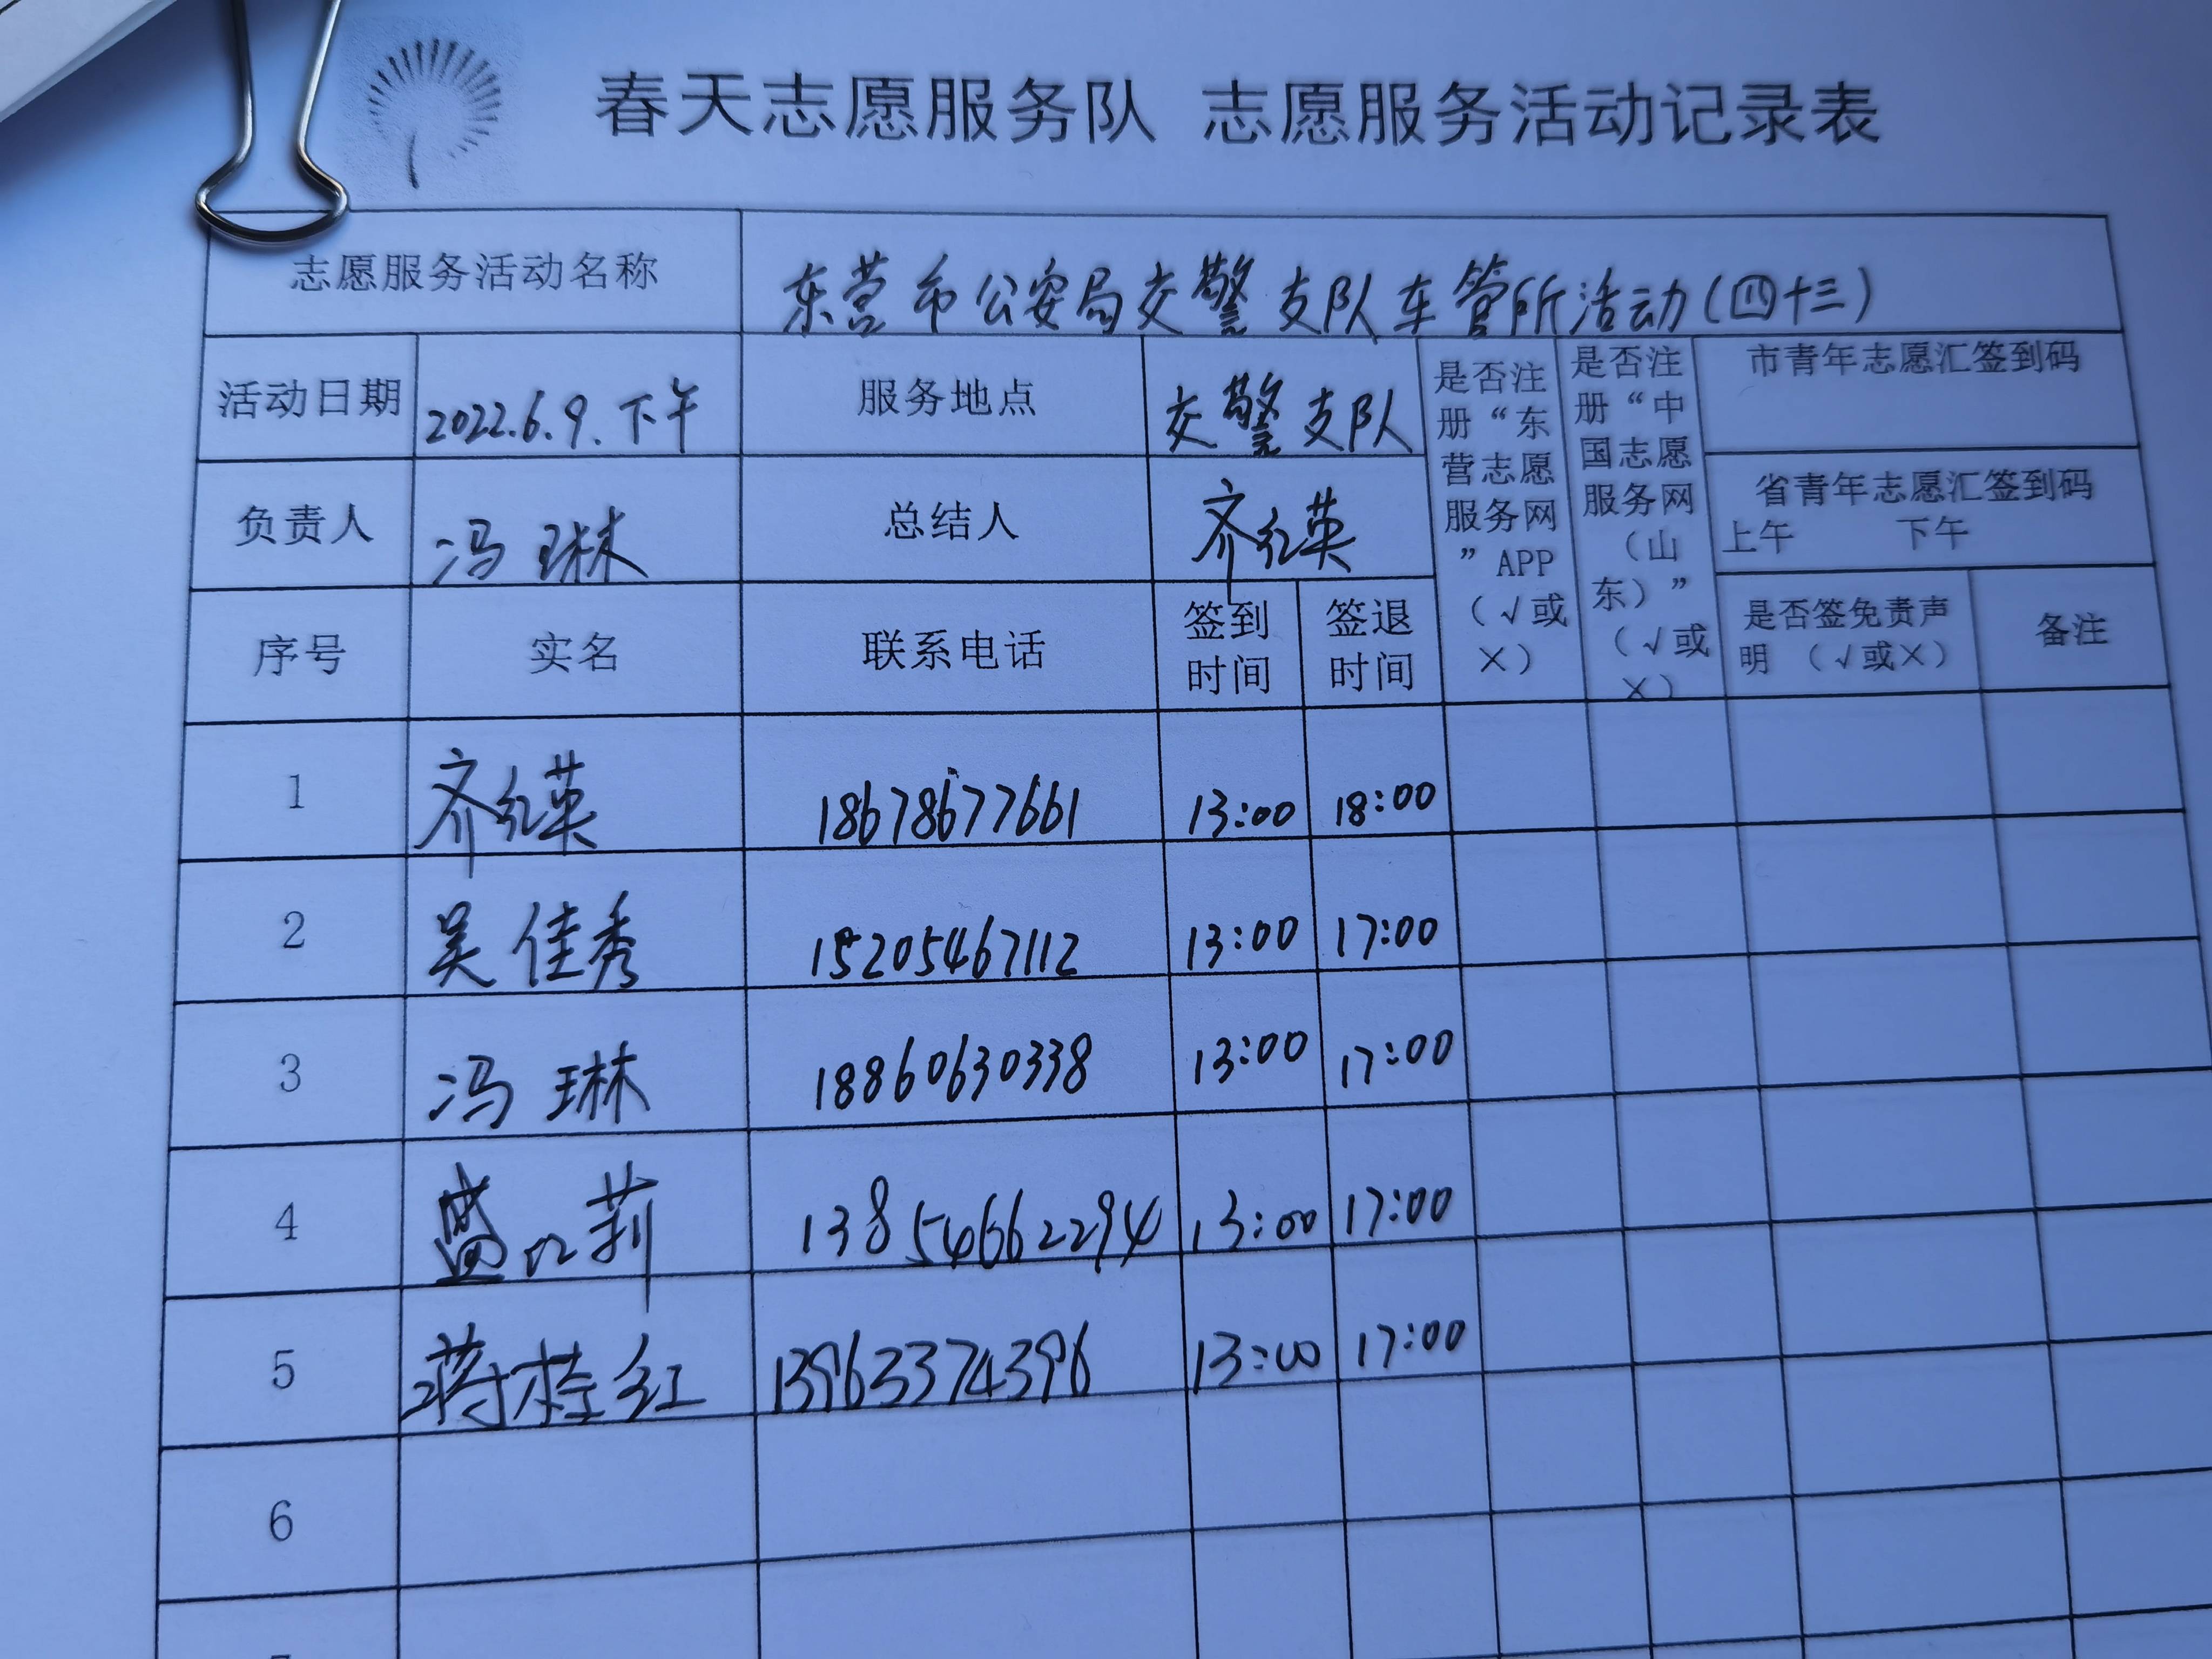 春天志愿服务队 志愿服务活动记录表
志愿服务活动名称 东营市公安局交警支队车管所活动(四十三)
活动日期 2022.6.9.下午 服务地点 交警支队
是否注册“东营志愿服务网”APP（√或×）
是否注册“中国志愿服务网（山东）”（√或×）
市青年志愿汇签到码
负责人 冯琳 总结人 齐红英
省青年志愿汇签到码
上午 下午
序号 实名 联系电话 签到时间 签退时间 是否签免责声明 （√或×） 备注
1 齐红英 18678677661 13:00 18:00
2 吴佳秀 15205467112 13:00 17:00
3 冯琳 18860630338 13:00 17:00
4 盛 莉 13854662294 13:00 17:00
5 蒋桂红 13963374396 13:00 17:00
6